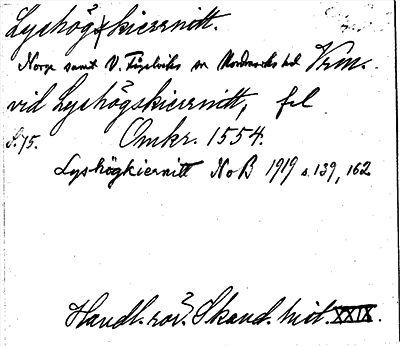 Lyshögskiernitt.
Norge samt V. Figelviks sn Nordmarks hd Vrm.
vid Lyshögskiernitt, fel
S. 75. Omkr. 1554.
Lyshögkiernitt NoB 1919 s. 139, 162
Handl. rör. Skand. hist. XXIX.